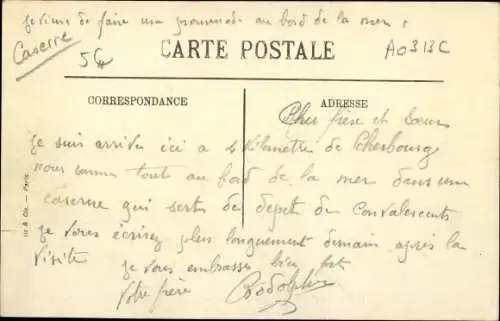 Je viens de faire une promenade au bord de la mer
Caserne
5€
CARTE POSTALE
A0313C
CORRESPONDANCE
ADRESSE
Cher frère et Sœur
Je suis arrivé ici a 4 kilmettre de Cherbourg
nous sommes tout au bord de la mer dans une
Caserne qui sert de depot de Convalescents
Je vous écrirez plus longuement demain après la
Visite
Je vous embrasses bien fort
Votre frère
Rodolphe
& Cie. — Paris.